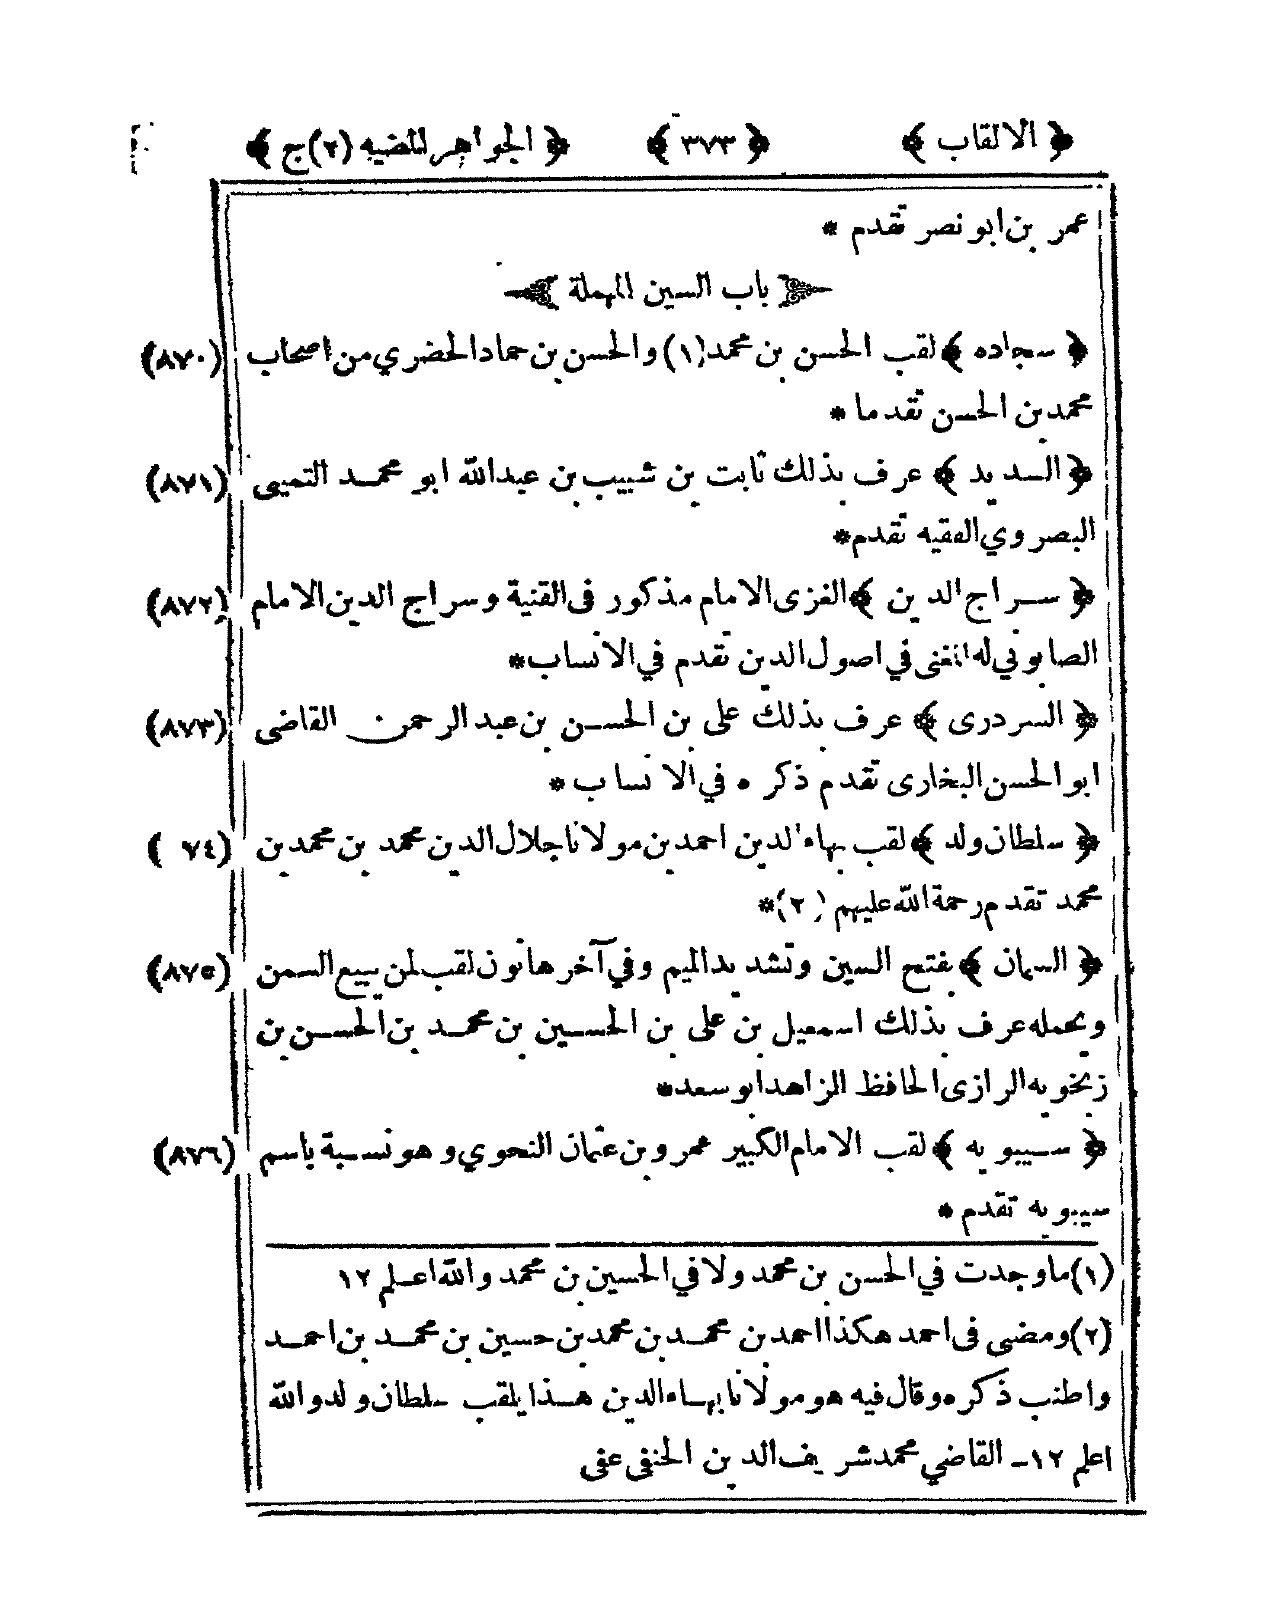 ﴿ الالقاب ﴾ ﴿ ٣٧٣ ﴾ ﴿ الجواهر المضيه (٢) ج ﴾
عمر بن ابو نصر تقدم *
باب السين المهملة
﴿ سجاده ﴾ لقب الحسن بن محمد (١) والحسن بن حماد الحضري من اصحاب (٨٧٠)
محمد بن الحسن تقدما *
﴿ السديد ﴾ عرف بذلك ثابت بن شبيب بن عبدالله ابو محمد التميمى (٨٧١)
البصروي الفقيه تقدم *
﴿ سراج الدين ﴾ الغزى الامام مذكور فى القنية وسراج الدين الامام (٨٧٢)
الصابوني له المغنى في اصول الدين تقدم في الانساب *
﴿ السردرى ﴾ عرف بذلك على بن الحسن بن عبد الرحمن القاضى (٨٧٣)
ابو الحسن البخارى تقدم ذكره في الانساب *
﴿ سلطان ولد ﴾ لقب بهاء الدين احمد بن مولانا جلال الدين محمد بن محمد بن (٧٤ )
محمد تقدم رحمة الله عليهم (٢) *
﴿ السمان ﴾ بفتح السين وتشديد الميم وفي آخرها نون لقب لمن يبيع السمن (٨٧٥)
ويحمله عرف بذلك اسمعيل بن على بن الحسين بن محمد بن الحسن بن
زنجويه الرازى الحافظ الزاهد ابو سعد *
﴿ سيبويه ﴾ لقب الامام الكبير عمرو بن عثمان النحوي وهو نسبة باسم (٨٧٦)
سيبويه تقدم *
(١) ما وجدت في الحسن بن محمد ولا في الحسين بن محمد والله اعلم ١٢
(٢) ومضى فى احمد هكذا احمد بن محمد بن محمد بن حسين بن محمد بن احمد
واطنب ذكره وقال فيه هو مولانا بهاء الدين هذا يلقب سلطان ولد والله
اعلم ١٢ ـ القاضي محمد شريف الدين الحنفى عفى